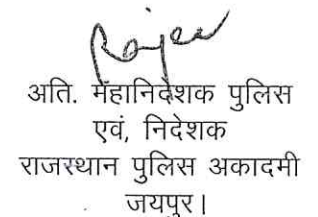 अति. महानिदेशक पुलिस
एवं, निदेशक
राजस्थान पुलिस अकादमी
जयपुर।